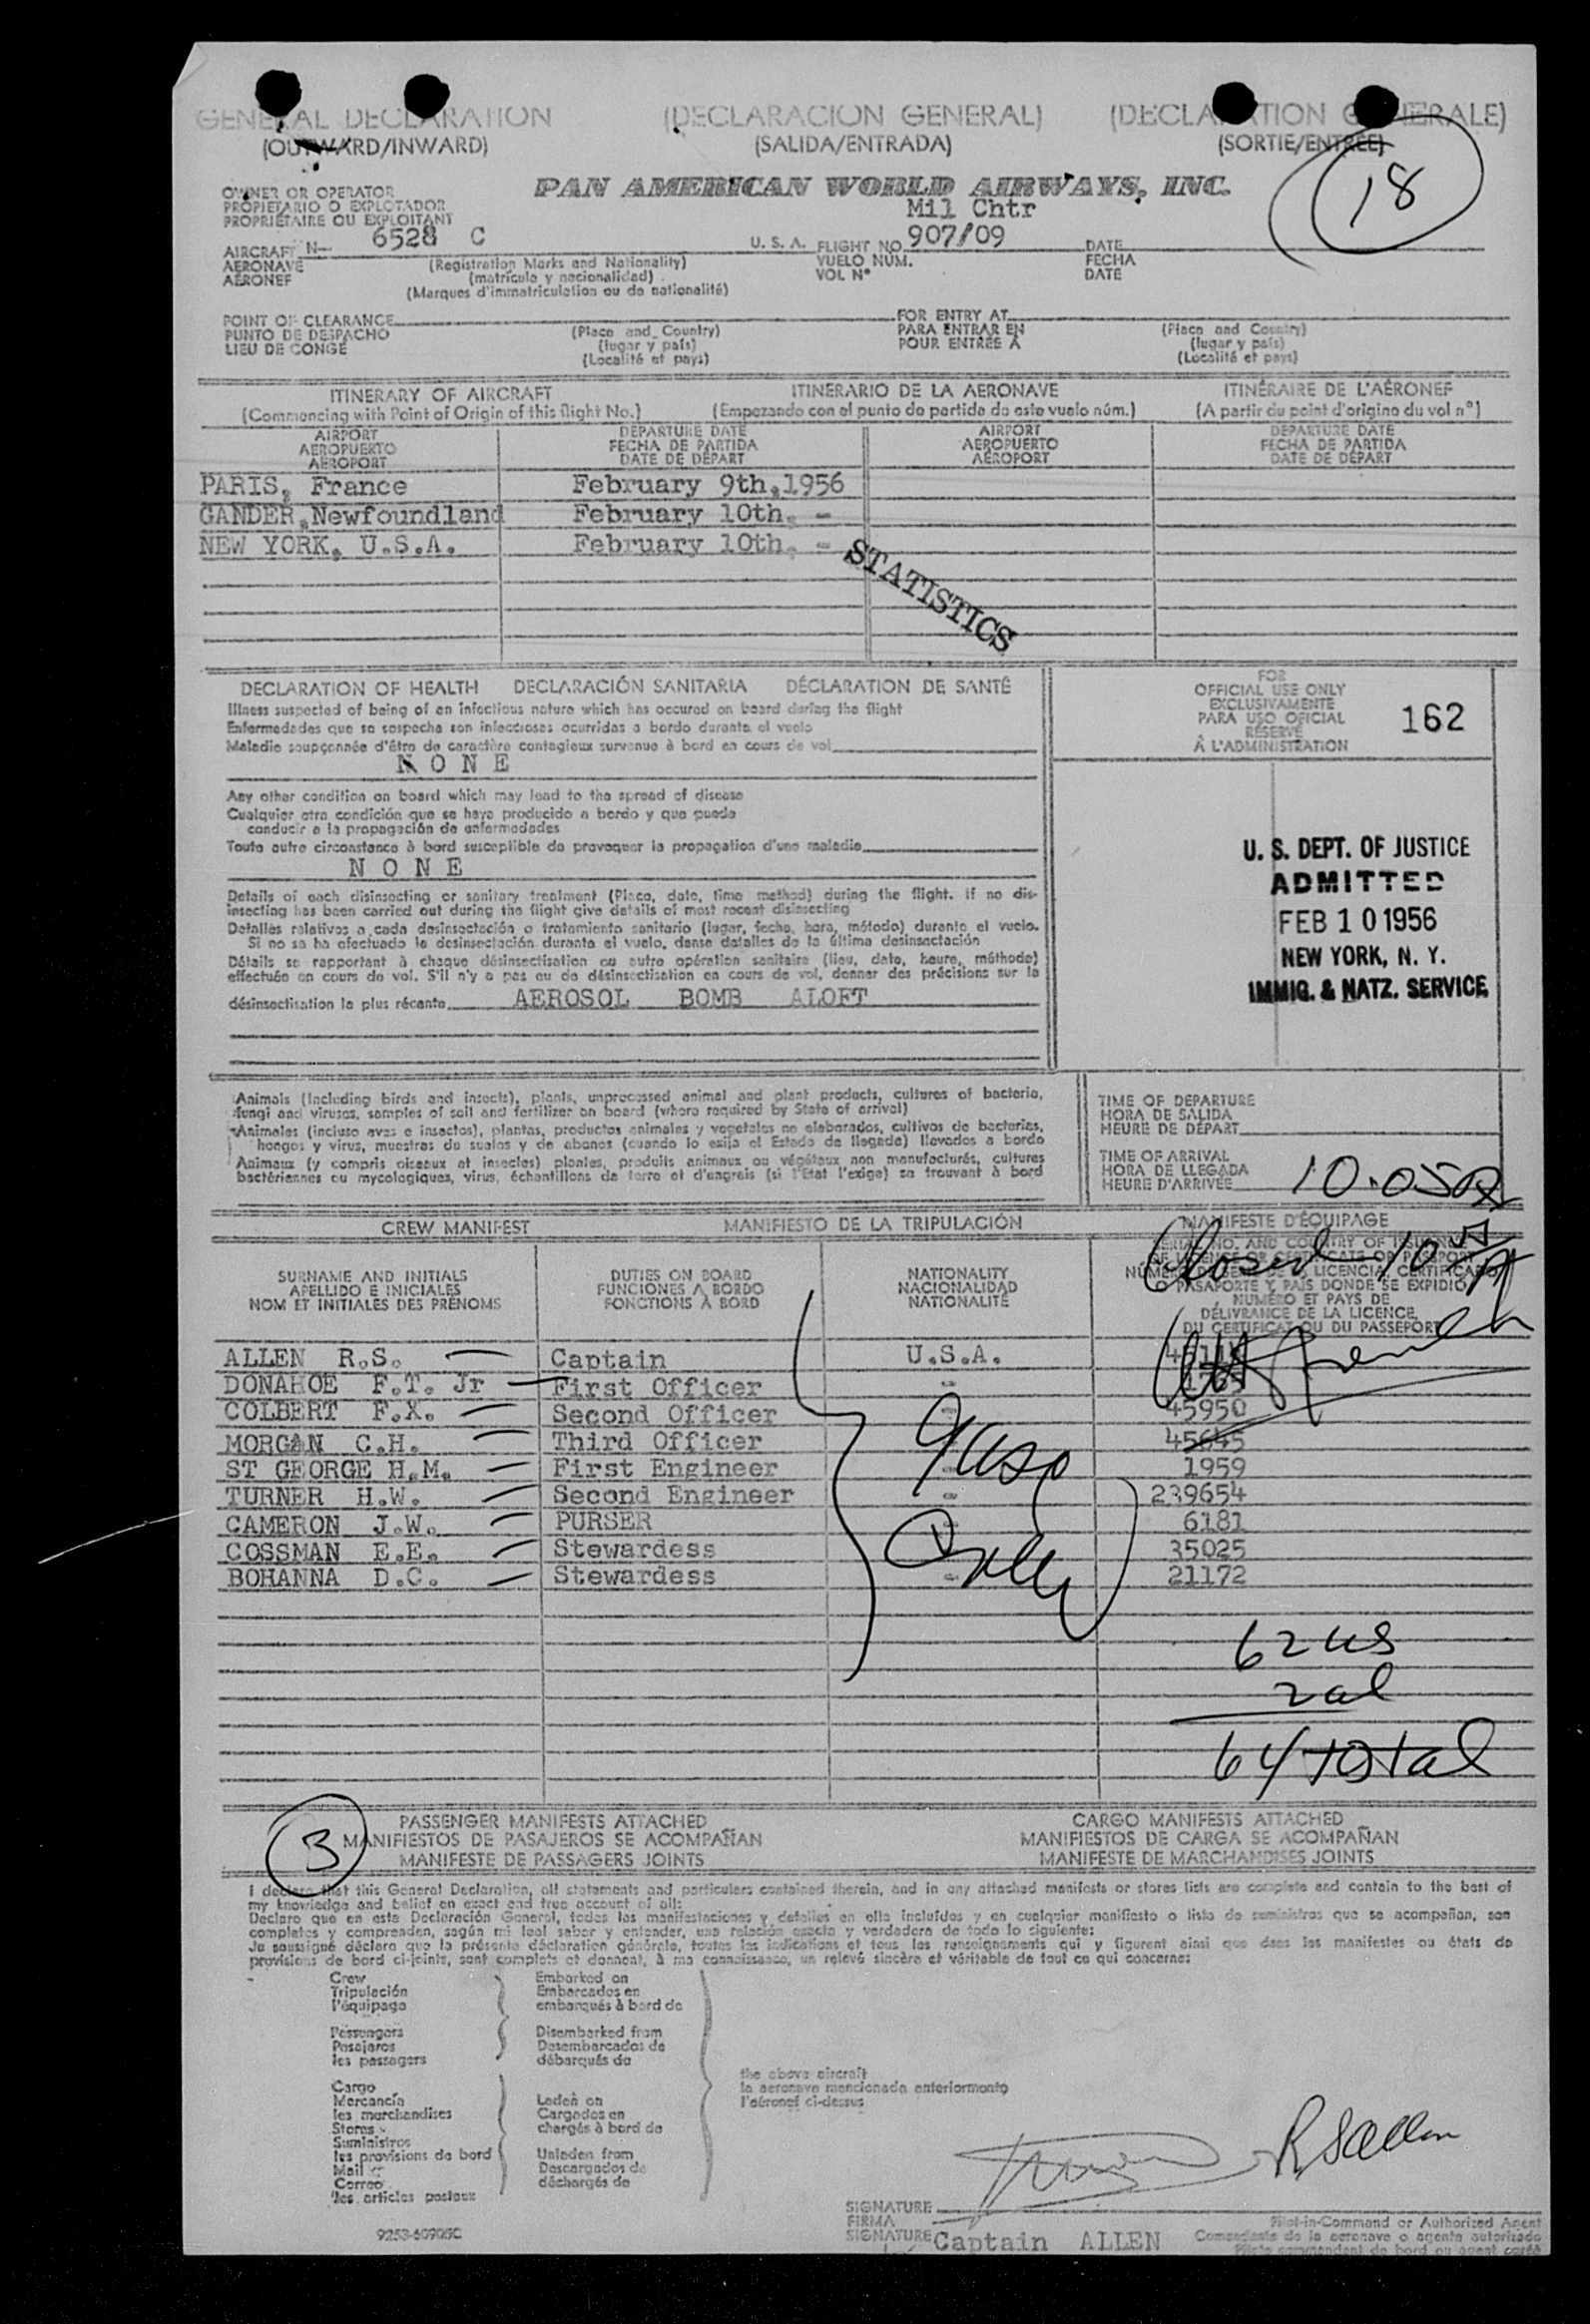 GENERAL DECLARATION (DECLARACION GENERAL) (DECLARATION GENERALE)
(OUTWARD/INWARD) (SALIDA/ENTRADA) (SORTIE/ENTRÉE)
18
OWNER OR OPERATOR
PROPIETARIO O EXPLOTADOR
PROPRIÉTAIRE OU EXPLOITANT
PAN AMERICAN WORLD AIRWAYS, INC.
Mil Chtr
AIRCRAFT N— 6528 C U. S. A. FLIGHT NO. 907/09 DATE
AERONAVE (Registration Marks and Nationality) VUELO NÚM. FECHA
AÉRONEF (matrícula y nacionalidad) VOL Nº DATE
(Marques d'immatriculation ou de nationalité)
POINT OF CLEARANCE FOR ENTRY AT
PUNTO DE DESPACHO (Place and Country) PARA ENTRAR EN (Place and Country)
LIEU DE CONGÉ (lugar y país) POUR ENTRÉE À (lugar y país)
(Localité et pays) (Localité et pays)
ITINERARY OF AIRCRAFT ITINERARIO DE LA AERONAVE ITINÉRAIRE DE L'AÉRONEF
(Commencing with Point of Origin of this flight No.) (Empezando con el punto de partida de este vuelo núm.) (A partir du point d'origine du vol nº)
AIRPORT DEPARTURE DATE AIRPORT DEPARTURE DATE
AEROPUERTO FECHA DE PARTIDA AEROPUERTO FECHA DE PARTIDA
AÉROPORT DATE DE DÉPART AÉROPORT DATE DE DÉPART
PARIS, France February 9th,1956
GANDER,Newfoundland February 10th, -
NEW YORK, U.S.A. February 10th, -
STATISTICS
DECLARATION OF HEALTH DECLARACIÓN SANITARIA DÉCLARATION DE SANTÉ
Illness suspected of being of an infectious nature which has occured on board during the flight
Enfermedades que se sospecha son infecciosas ocurridas a bordo durante el vuelo
Maladie soupçonnée d'être de caractère contagieux survenue à bord en cours de vol
N O N E
Any other condition on board which may lead to the spread of disease
Cualquier otra condición que se haya producido a bordo y que pueda
conducir a la propagación de enfermedades
Toute autre circonstance à bord susceptible de provoquer la propagation d'une maladie
N O N E
Details of each disinsecting or sanitary treatment (Place, date, time method) during the flight. If no dis-
insecting has been carried out during the flight give details of most recent disinsecting
Detalles relativos a cada desinsectación o tratamiento sanitario (lugar, fecha, hora, método) durante el vuelo.
Si no se ha efectuado la desinsectación durante el vuelo, dense detalles de la última desinsectación
Détails se rapportant à chaque désinsectisation ou autre opération sanitaire (lieu, date, heure, méthode)
effectuée en cours de vol. S'il n'y a pas eu de désinsectisation en cours de vol, donner des précisions sur la
désinsectisation la plus récente AEROSOL BOMB ALOFT
FOR
OFFICIAL USE ONLY
EXCLUSIVAMENTE
PARA USO OFICIAL
RÉSERVÉ
À L'ADMINISTRATION
162
U. S. DEPT. OF JUSTICE
ADMITTED
FEB 10 1956
NEW YORK, N. Y.
IMMIG. & NATZ. SERVICE
Animals (Including birds and insects), plants, unprocessed animal and plant products, cultures of bacteria,
fungi and viruses, samples of soil and fertilizer on board (where required by State of arrival)
Animales (incluso aves e insectos), plantas, productos animales y vegetales no elaborados, cultivos de bacterias,
hongos y virus, muestras de suelos y de abonos (cuando lo exija el Estado de llegada) llevados a bordo
Animaux (y compris oiseaux et insectes) plantes, produits animaux ou végétaux non manufacturés, cultures
bactériennes ou mycologiques, virus, échantillons de terre et d'engrais (si l'État l'exige) se trouvant à bord
TIME OF DEPARTURE
HORA DE SALIDA
HEURE DE DÉPART
TIME OF ARRIVAL
HORA DE LLEGADA
HEURE D'ARRIVÉE 10.05
CREW MANIFEST MANIFIESTO DE LA TRIPULACIÓN MANIFESTE D'ÉQUIPAGE
Closed 10
SURNAME AND INITIALS DUTIES ON BOARD NATIONALITY
APELLIDO E INICIALES FUNCIONES A BORDO NACIONALIDAD
NOM ET INITIALES DES PRÉNOMS FONCTIONS À BORD NATIONALITÉ
PASAPORTE Y PAÍS DONDE SE EXPIDIÓ
NUMÉRO ET PAYS DE
DÉLIVRANCE DE LA LICENCE,
DU CERTIFICAT OU DU PASSEPORT
ALLEN R.S. Captain U.S.A.
DONAHOE F.T. Jr First Officer -
COLBERT F.X. Second Officer - 45950
MORGAN C.H. Third Officer 45645
ST GEORGE H.M. First Engineer - 1959
TURNER H.W. Second Engineer - 239654
CAMERON J.W. PURSER - 6181
COSSMAN E.E. Stewardess 35025
BOHANNA D.C. Stewardess - 21172
62 US
2 al
64 total
3
PASSENGER MANIFESTS ATTACHED CARGO MANIFESTS ATTACHED
MANIFIESTOS DE PASAJEROS SE ACOMPAÑAN MANIFIESTOS DE CARGA SE ACOMPAÑAN
MANIFESTE DE PASSAGERS JOINTS MANIFESTE DE MARCHANDISES JOINTS
I declare that this General Declaration, all statements and particulars contained therein, and in any attached manifests or stores lists are complete and contain to the best of
my knowledge and belief an exact and true account of all:
Declaro que en esta Declaración General, todas las manifestaciones y detalles en ella incluídos y en cualquier manifiesto o lista de suministros que se acompañan, son
completas y comprenden, según mi leal saber y entender, una relación exacta y verdadera de todo lo siguiente:
Je soussigné déclare que la présente déclaration générale, toutes les indications et tous les renseignements qui y figurent ainsi que dans les manifestes ou états de
provisions de bord ci-joints, sont complets et donnent, à ma connaissance, un relevé sincère et véritable de tout ce qui concerne:
Crew Embarked on
Tripulación Embarcados en
l'équipage embarqués à bord de
Passengers Disembarked from
Pasajeros Desembarcados de
les passagers débarqués de
the above aircraft
la aeronave mencionada anteriormente
l'aéronef ci-dessus
Cargo
Mercancía Laden on
les marchandises Cargados en
Stores chargés à bord de
Suministros
les provisions de bord Unladen from
Mail Descargados de
Correo déchargés de
les articles postaux
RSAllen
SIGNATURE
FIRMA Pilot-in-Command or Authorized Agent
SIGNATURE Captain ALLEN Comandante de la aeronave o agente autorizado
9253-60905C